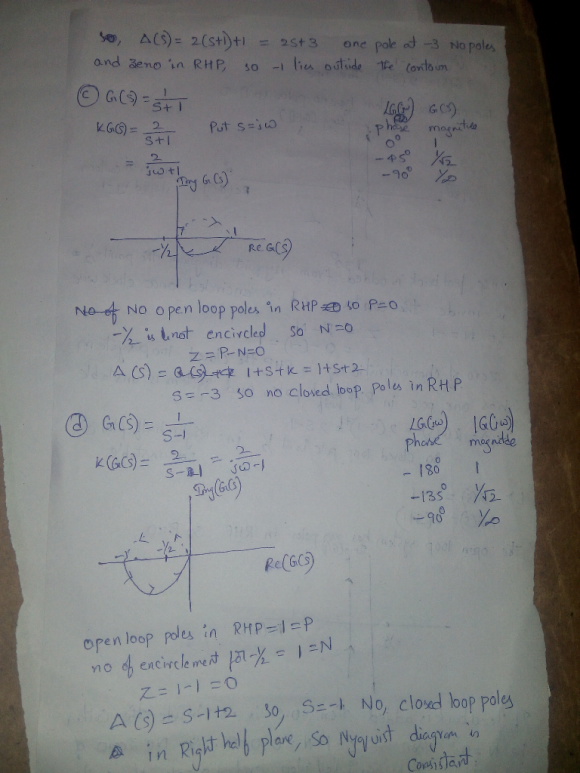 so, Δ(s) = 2(s+1)+1 = 2s+3 one pole at -3 No poles
and zeros in RHP, so -1 lies outside the contour
(c) G(s) = 1/(s+1)
KG(s) = 2/(s+1) Put s=jω
= 2/(jω+1)
∠G(jω) G(s)
phase magnitude
0° 1
-45° 1/√2
-90° 1/∞
Img G(s)
-1/2 1 Re G(s)
No of No open loop poles in RHP so P=0
-1/2 is not encircled so N=0
Z=P-N=0
Δ(s) = 1+s+k = 1+s+2
s=-3 so no closed loop poles in RHP
(d) G(s) = 1/(s-1)
K(G(s) = 2/(s-1) = 2/(jω-1)
∠G(jω) |G(jω)|
phase magnitude
-180° 1
-135° 1/√2
-90° 1/∞
Img(G(s)
-1 -1/2
Re(G(s)
open loop poles in RHP=1=P
no of encirclement for -1/2 = 1=N
Z = 1-1=0
Δ(s) = s-1+2 so, s=-1 No, closed loop poles
in Right half plane, so Nyquist diagram is
consistant.